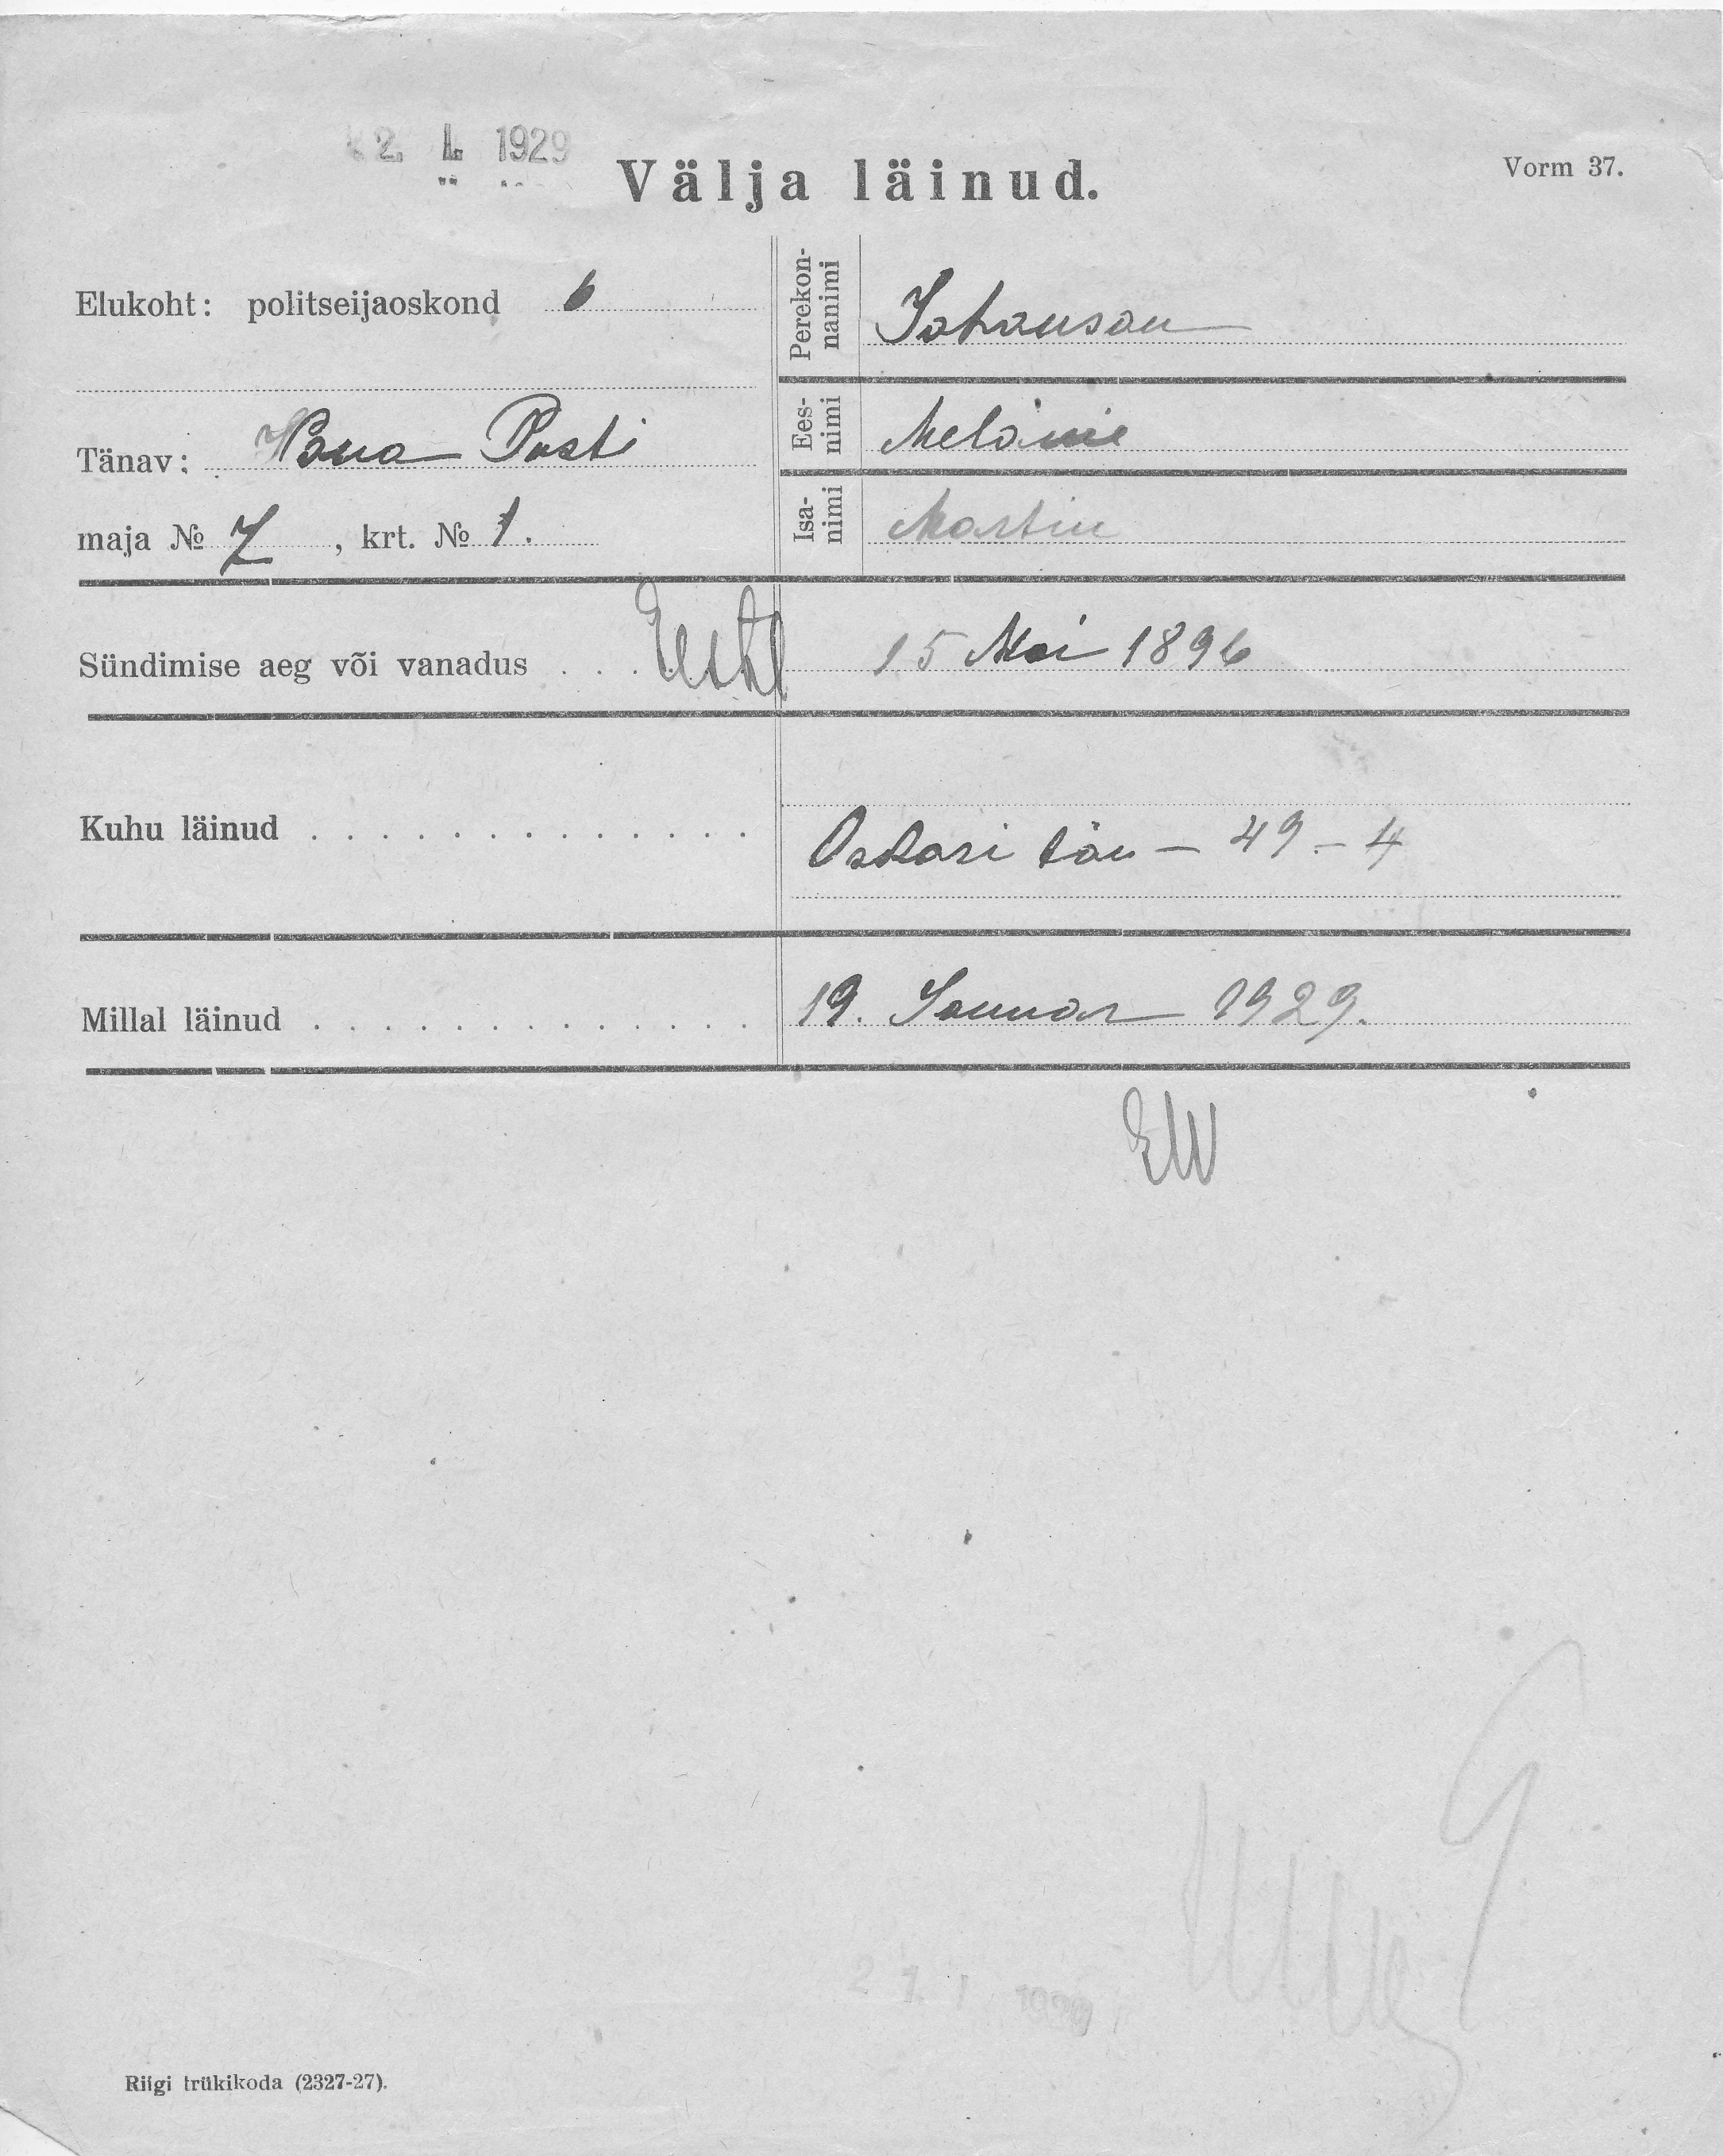 2. I. 1929
Välja läinud.
Vorm 37.
Elukoht: politseijaoskond 6
Tänav: Vana Posti
maja № 7, krt. № 1.
Perekonnanimi Johanson
Eesnimi Melanie
Isanimi Martin
Sündimise aeg või vanadus . . . 15 Mai 1896
Kuhu läinud . . . . . . . . . . . . . Oskari tän – 49 – 4
Millal läinud . . . . . . . . . . . . . 19. Januar 1929.
EW
Riigi trükikoda (2327-27).